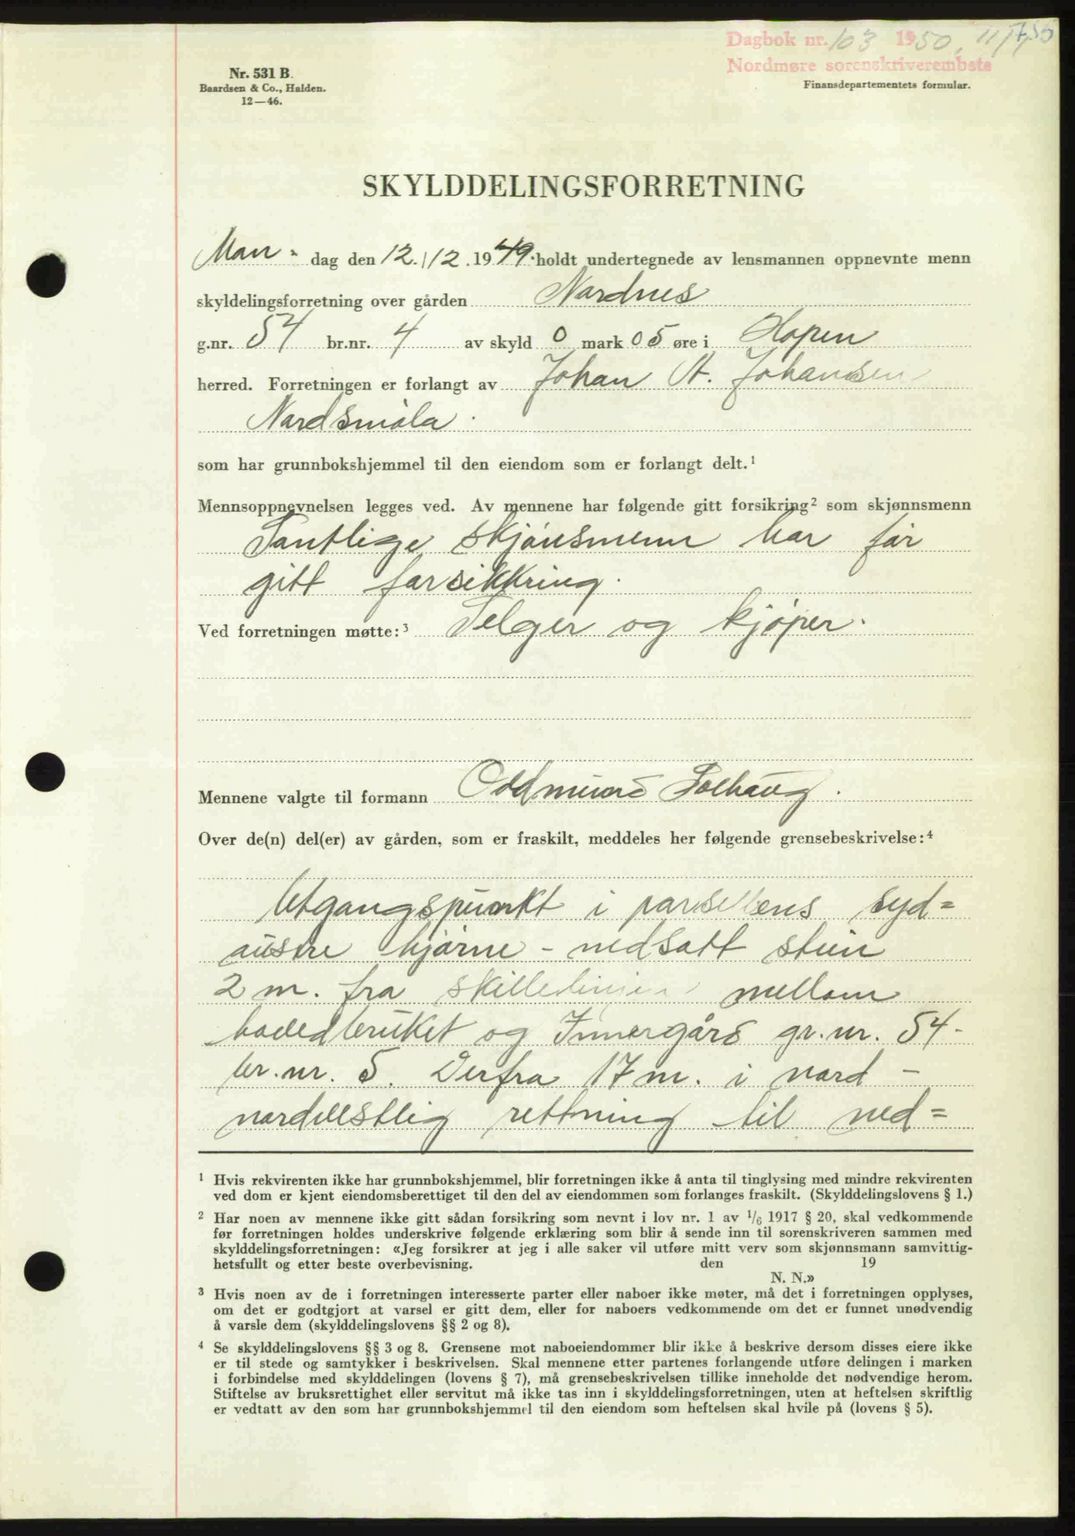 Dagbok nr. 103 1950, 11/1 750
Nordmøre sorenskriverembete
Nr. 531 B.
Baardsen & Co., Halden.
12—46.
Finansdepartementets formular.
SKYLDDELINGSFORRETNING
Man- dag den 12./12. 1949. holdt undertegnede av lensmannen oppnevnte menn
skyldelingsforretning over gården Nordnes
g.nr. 54 br.nr. 4 av skyld 0 mark 05 øre i Hopen
herred. Forretningen er forlangt av Johan A. Johansen
Nordsmøla.
som har grunnbokshjemmel til den eiendom som er forlangt delt.¹
Mennsoppnevnelsen legges ved. Av mennene har følgende gitt forsikring² som skjønnsmenn
Samtlige skjønsmenn har før
gitt forsikkring.
Ved forretningen møtte:³ Selger og kjøper.
Mennene valgte til formann Oddmund Solhaug.
Over de(n) del(er) av gården, som er fraskilt, meddeles her følgende grensebeskrivelse:⁴
Utgangspunkt i parsellens syd=
austre hjørne - nedsatt stein
2 m. fra skillelinjen mellom
hovedbruket og Innergård gr.nr. 54-
br.nr. 5. Derfra 17 m. i nord-
nordvestlig rettning til ned=
¹ Hvis rekvirenten ikke har grunnbokshjemmel, blir forretningen ikke å anta til tinglysing med mindre rekvirenten
ved dom er kjent eiendomsberettiget til den del av eiendommen som forlanges fraskilt. (Skylddelingslovens § 1.)
² Har noen av mennene ikke gitt sådan forsikring som nevnt i lov nr. 1 av 1/6 1917 § 20, skal vedkommende
før forretningen holdes underskrive følgende erklæring som blir å sende inn til sorenskriveren sammen med
skylddelingsforretningen: «Jeg forsikrer at jeg i alle saker vil utføre mitt verv som skjønnsmann samvittig-
hetsfullt og etter beste overbevisning. den 19
N. N.»
³ Hvis noen av de i forretningen interesserte parter eller naboer ikke møter, må det i forretningen opplyses,
om det er godtgjort at varsel er gitt dem, eller for naboers vedkommende om det er funnet unødvendig
å varsle dem (skylddelingslovens §§ 2 og 8).
⁴ Se skylddelingslovens §§ 3 og 8. Grensene mot naboeiendommer blir ikke å beskrive dersom disses eiere ikke
er til stede og samtykker i beskrivelsen. Skal mennene etter partenes forlangende utføre delingen i marken
i forbindelse med skylddelingen (lovens § 7), må grensebeskrivelsen tillike inneholde det nødvendige herom.
Stiftelse av bruksrettighet eller servitut må ikke tas inn i skylddelingsforretningen, uten at heftelsen skriftlig
er vedtatt av den som har grunnbokshjemmel til den eiendom som heftelsen skal hvile på (lovens § 5).